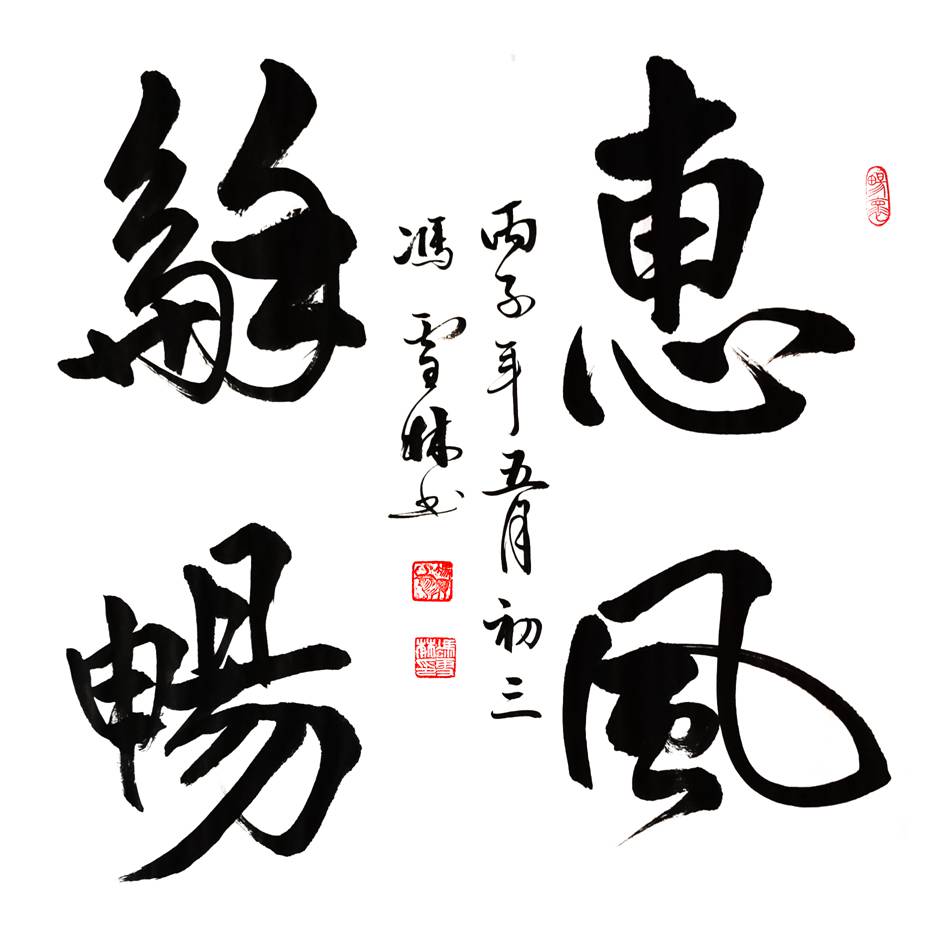 惠風
丙子年五月初三
馮雪林書
龢暢